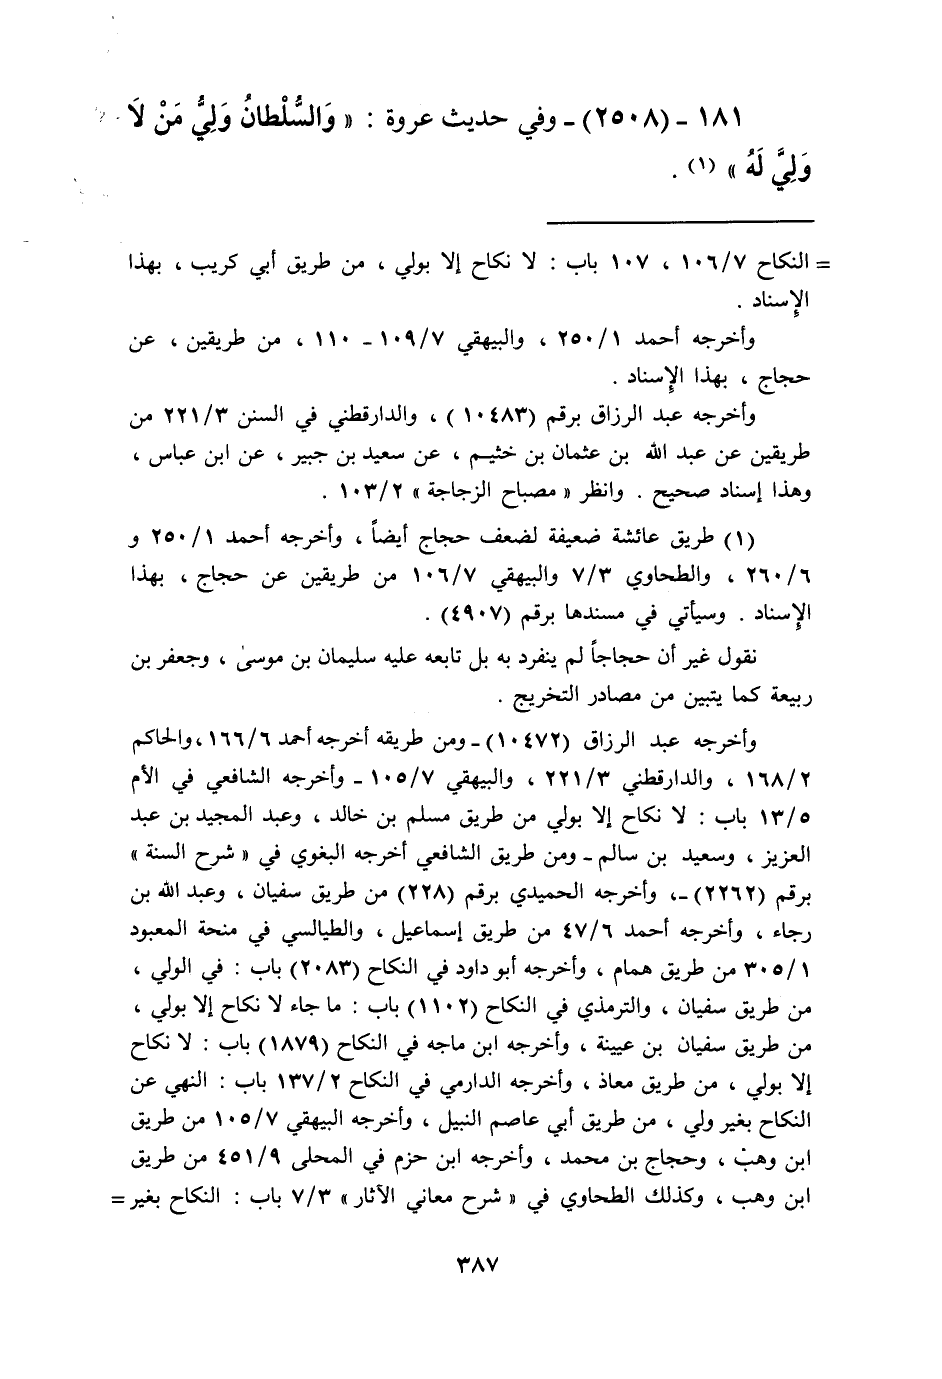 ١٨١ - (٢٥٠٨) - وفي حديث عروة : « وَالسُّلْطانُ وَلِيُّ مَنْ لاَ
وَلِيَّ لَهُ » (١) .
= النكاح ١٠٦/٧ ، ١٠٧ باب : لا نكاح إلا بولي ، من طريق أبي كريب ، بهذا
الإِسناد .
وأخرجه أحمد ٢٥٠/١ ، والبيهقي ١٠٩/٧ - ١١٠ ، من طريقين ، عن
حجاج ، بهذا الإِسناد .
وأخرجه عبد الرزاق برقم (١٠٤٨٣) ، والدارقطني في السنن ٢٢١/٣ من
طريقين عن عبد الله بن عثمان بن خثيم ، عن سعيد بن جبير ، عن ابن عباس ،
وهذا إسناد صحيح . وانظر « مصباح الزجاجة » ١٠٣/٢ .
(١) طريق عائشة ضعيفة لضعف حجاج أيضاً ، وأخرجه أحمد ٢٥٠/١ و
٢٦٠/٦ ، والطحاوي ٧/٣ والبيهقي ١٠٦/٧ من طريقين عن حجاج ، بهذا
الإِسناد . وسيأتي في مسندها برقم (٤٩٠٧) .
نقول غير أن حجاجاً لم ينفرد به بل تابعه عليه سليمان بن موسىٰ ، وجعفر بن
ربيعة كما يتبين من مصادر التخريج .
وأخرجه عبد الرزاق (١٠٤٧٢) - ومن طريقه أخرجه أحمد ١٦٦/٦ ، والحاكم
١٦٨/٢ ، والدارقطني ٢٢١/٣ ، والبيهقي ١٠٥/٧ - وأخرجه الشافعي في الأم
١٣/٥ باب : لا نكاح إلا بولي من طريق مسلم بن خالد ، وعبد المجيد بن عبد
العزيز ، وسعيد بن سالم - ومن طريق الشافعي أخرجه البغوي في « شرح السنة »
برقم (٢٢٦٢) - ، وأخرجه الحميدي برقم (٢٢٨) من طريق سفيان ، وعبد الله بن
رجاء ، وأخرجه أحمد ٤٧/٦ من طريق إسماعيل ، والطيالسي في منحة المعبود
٣٠٥/١ من طريق همام ، وأخرجه أبو داود في النكاح (٢٠٨٣) باب : في الولي ،
من طريق سفيان ، والترمذي في النكاح (١١٠٢) باب : ما جاء لا نكاح إلا بولي ،
من طريق سفيان بن عيينة ، وأخرجه ابن ماجه في النكاح (١٨٧٩) باب : لا نكاح
إلا بولي ، من طريق معاذ ، وأخرجه الدارمي في النكاح ١٣٧/٢ باب : النهي عن
النكاح بغير ولي ، من طريق أبي عاصم النبيل ، وأخرجه البيهقي ١٠٥/٧ من طريق
ابن وهب ، وحجاج بن محمد ، وأخرجه ابن حزم في المحلى ٤٥١/٩ من طريق
ابن وهب ، وكذلك الطحاوي في « شرح معاني الآثار » ٧/٣ باب : النكاح بغير =
٣٨٧